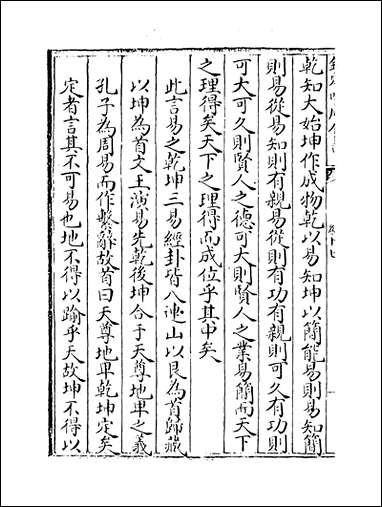 乾知大始坤作成物乾以易知坤以簡能易則易知簡
則易從易知則有親易從則有功有親則可久有功則
可大可久則賢人之德可大則賢人之業易簡而天下
之理得矣天下之理得而成位乎其中矣
此言易之乾坤三易經卦皆八連山以艮為首歸藏
以坤為首文王演易先乾後坤合于天尊地卑之義
孔子為周易而作繫辭故首曰天尊地卑乾坤定矣
定者言其不可易也地不得以踰乎天故坤不得以